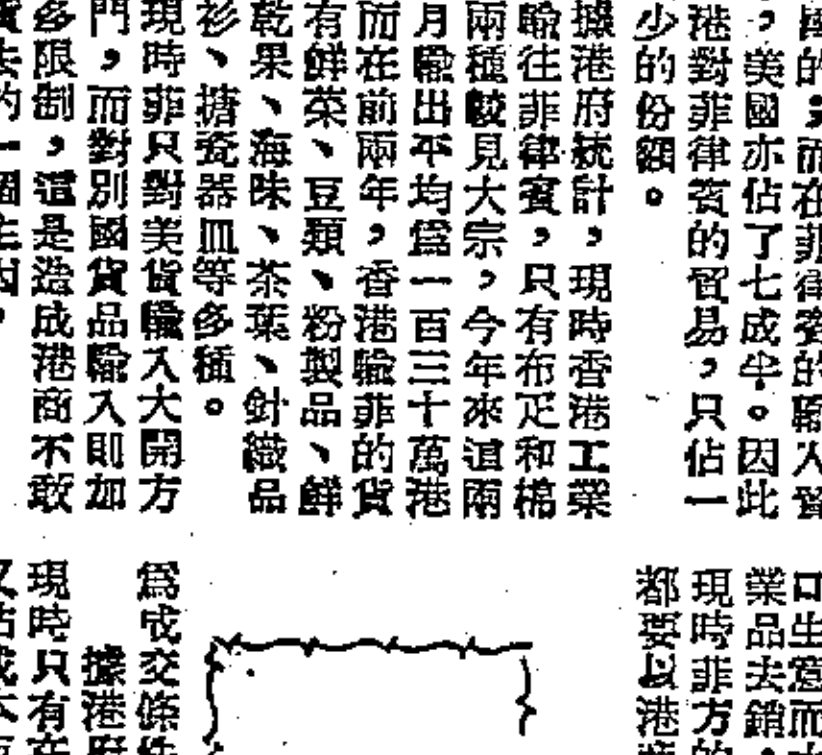 的，而在菲律賓的輸入
，美國亦佔了七成半。因此
港對菲律賓的貿易，只佔一
少的份額。
據港府統計，現時香港工業
輸往菲律賓，只有布疋和棉
兩種較見大宗，今年來這兩
月輸出平均為一百三十萬港
而在前兩年，香港輸菲的貨
有鮮菜、豆類、粉製品、鮮
乾果、海味、茶葉、針織品
衫、搪瓷器皿等多種。
現時菲只對美貨輸入大開方
門，而對別國貨品輸入則加
多限制，這是造成港商不敢
去的一個主因，
口生意而
業品去銷
現時菲方的
都要以港
為成交條件
據港府
現時只有